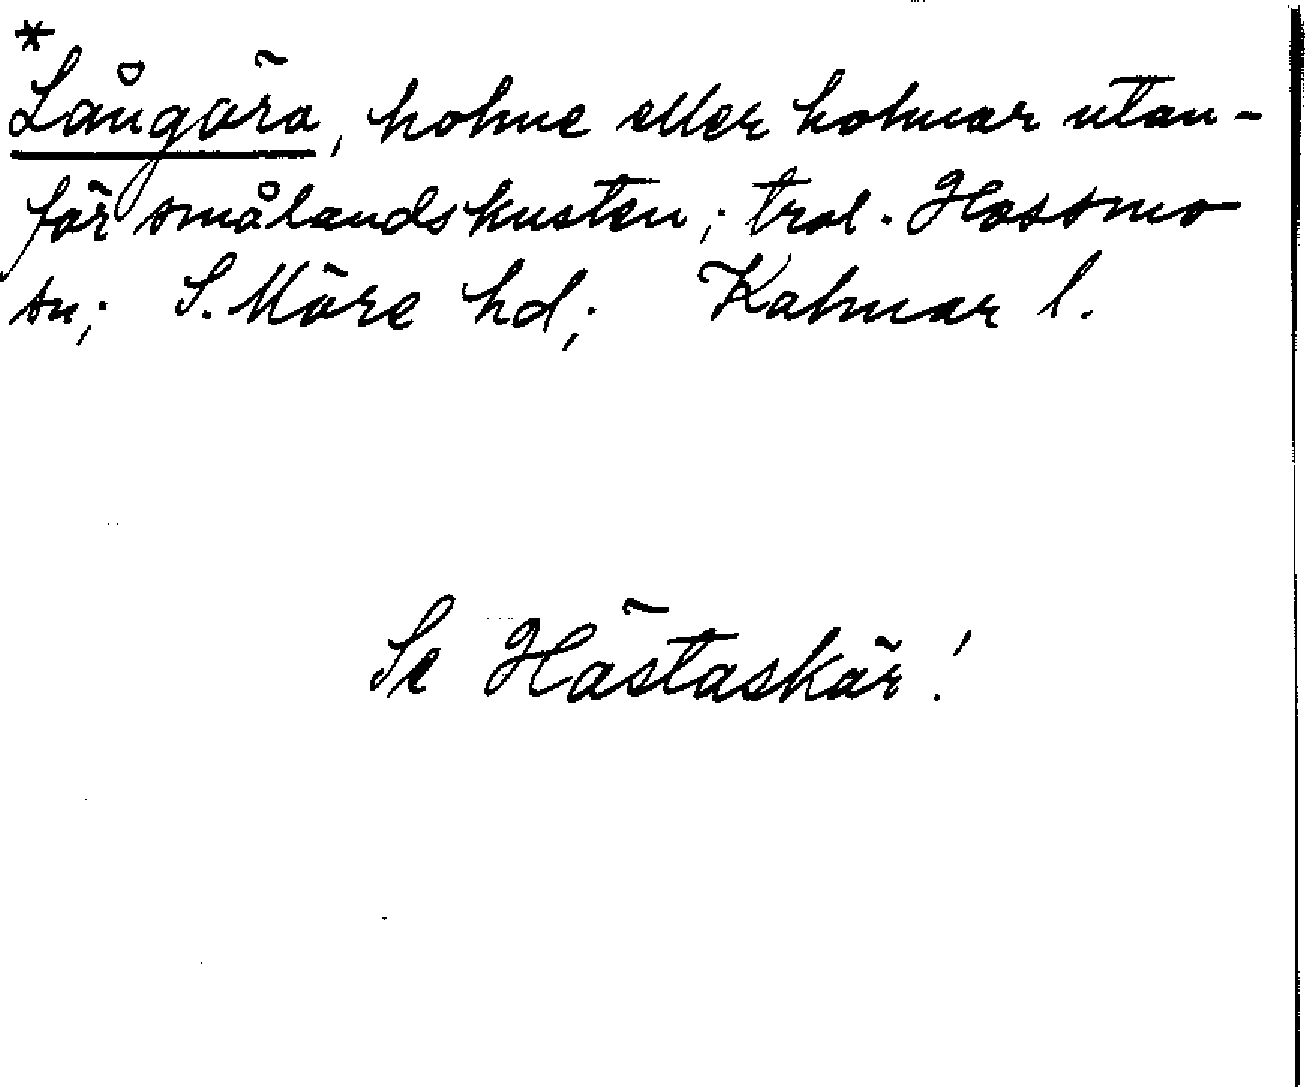 *
Långöra, holme eller holmar utan-
för smålandskusten; trol. Hossmo
sn; S. Möre hd; Kalmar l.
Se Hästaskär!